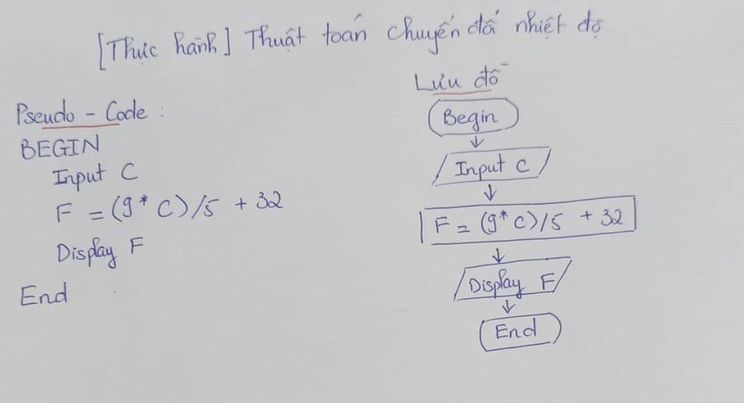 [Thực hành] Thuật toán chuyển đổi nhiệt độ
Pseudo - Code :
BEGIN
Input C
F = (9* C)/5 + 32
Display F
End
Lưu đồ
Begin
Input C
F = (9* C)/5 + 32
Display F
End